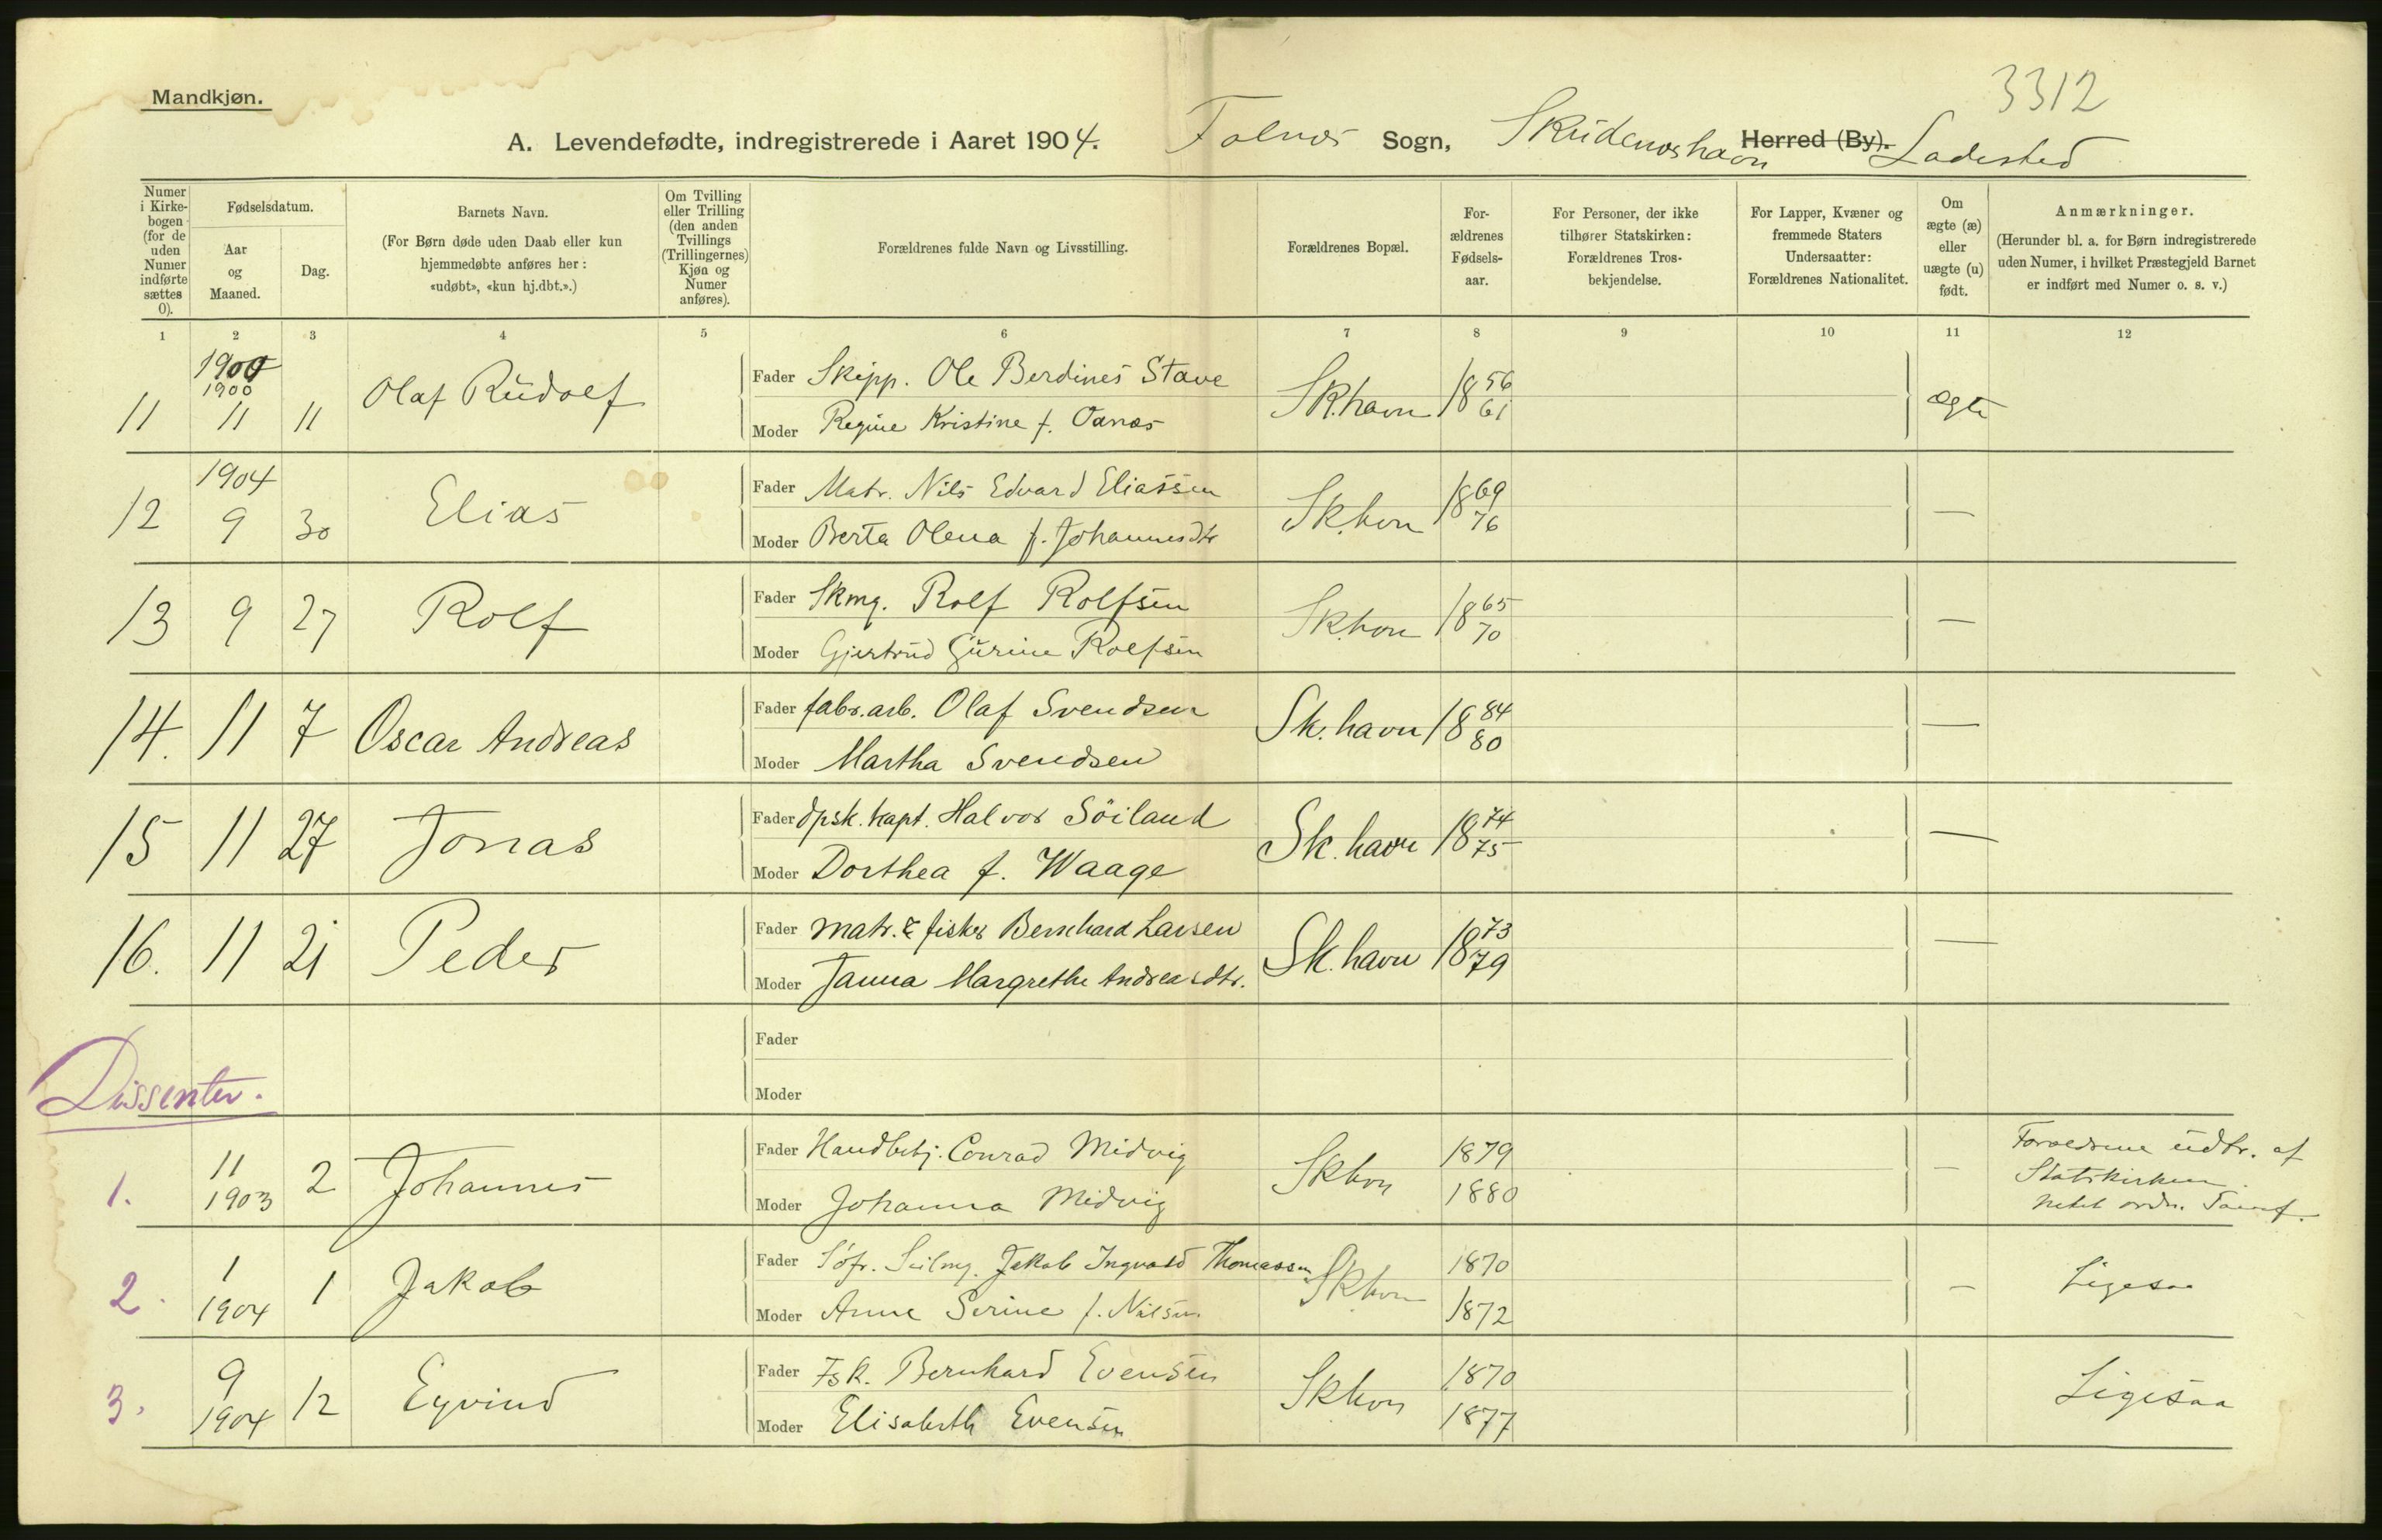 3312
Mandkjøn.
A. Levendefødte, indregistrerede i Aaret 1904. Falnes Sogn, Skudenæshavn Herred (By). Ladested
Numer i Kirke-bogen (for de uden Numer indførte sættes 0).
Fødselsdatum.
Aar og Maaned.
Dag.
Barnets Navn.
(For Børn døde uden Daab eller kun hjemmedøbte anføres her: «udøbt», «kun hj.dbt.».)
Om Tvilling eller Trilling (den anden Tvillings (Trillingernes) Kjøn og Numer anføres).
Forældrenes fulde Navn og Livsstilling.
Forældrenes Bopæl.
For-ældrenes Fødsels-aar.
For Personer, der ikke tilhører Statskirken: Forældrenes Tros-bekjendelse.
For Lapper, Kvæner og fremmede Staters Undersaatter: Forældrenes Nationalitet.
Om ægte (æ) eller uægte (u) født.
Anmærkninger.
(Herunder bl. a. for Børn indregistrerede uden Numer, i hvilket Præstegjeld Barnet er indført med Numer o. s. v.)
1 2 3 4 5 6 7 8 9 10 11 12
11 1900 1900 11 11 Olaf Rudolf Fader Skipp. Ole Berdines Stave Sk.havn 1856 ægte
Moder Regine Kristine f. Oanæs 61
12 1904 9 30 Elias Fader Matr. Nils Edvard Eliassen Sk.hvn 1869 —
Moder Berta Olena f. Johannesdtr 76
13 9 27 Rolf Fader Skmg. Rolf Rolfsen Sk.hvn 1865 —
Moder Gjertrud Gurine Rolfsen 70
14. 11 7 Oscar Andreas Fader fabr.arb. Olaf Svendsen Sk. havn 1884 —
Moder Martha Svendsen 80
15 11 27 Jonas Fader dpsk. kapt. Halvor Söiland Sk. havn 1874 —
Moder Dorthea f. Waage 75
16. 11 21 Peder Fader matr. & fisker Bernhard Larsen Sk. havn 1873 —
Moder Janna Margrethe Andreasdtr. 79
Fader
Moder
Dissenter.
1. 11 1903 2 Johannes Fader Handbetj. Conrad Midvig Skhvn 1879 — Forældrene udtr. af Statskirken.
Moder Johanna Midvig 1880
2. 1 1904 1 Jakob Fader Jakob Ingvald Thomassen Skhvn 1870 — Ligesaa
Moder Anne Serine f. Nilsen 1872
3. 9 1904 12 Eyvind Fader Fsk. Bernhard Evensen Skhvn 1870 Ligesaa
Moder Elisabeth Evensen 1877